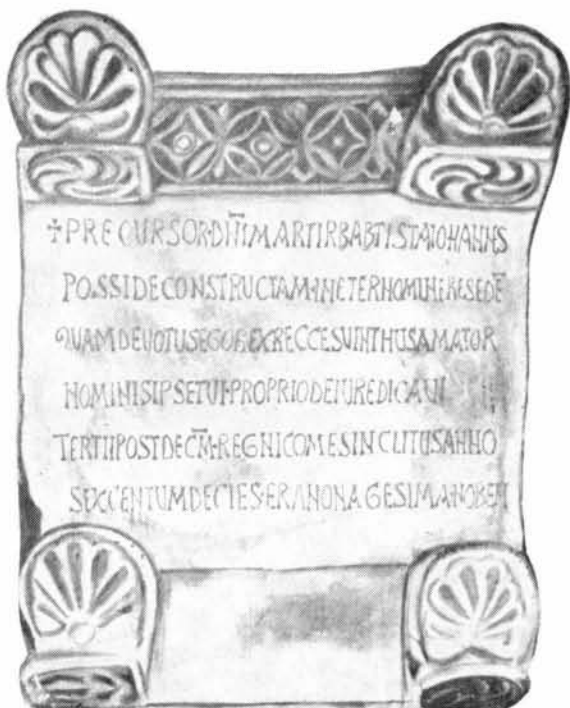 ✝PRECURSOR·DN̅IMARTIRBABTISTAIOHANNS
POSSIDECONSTRUCTAM·INETERNOMUNERESEDE̅
QUAMDEVOTUSEGOREXRECCESVINTHUSAMATOR
NOMINISIPSETUI·PROPRIODEIUREDICAVI
TERTIIPOSTDECM̅·REGNICOMESINCLITUSANNO
SEXCENTUMDECIES·ERANONAGESIMANOBEM